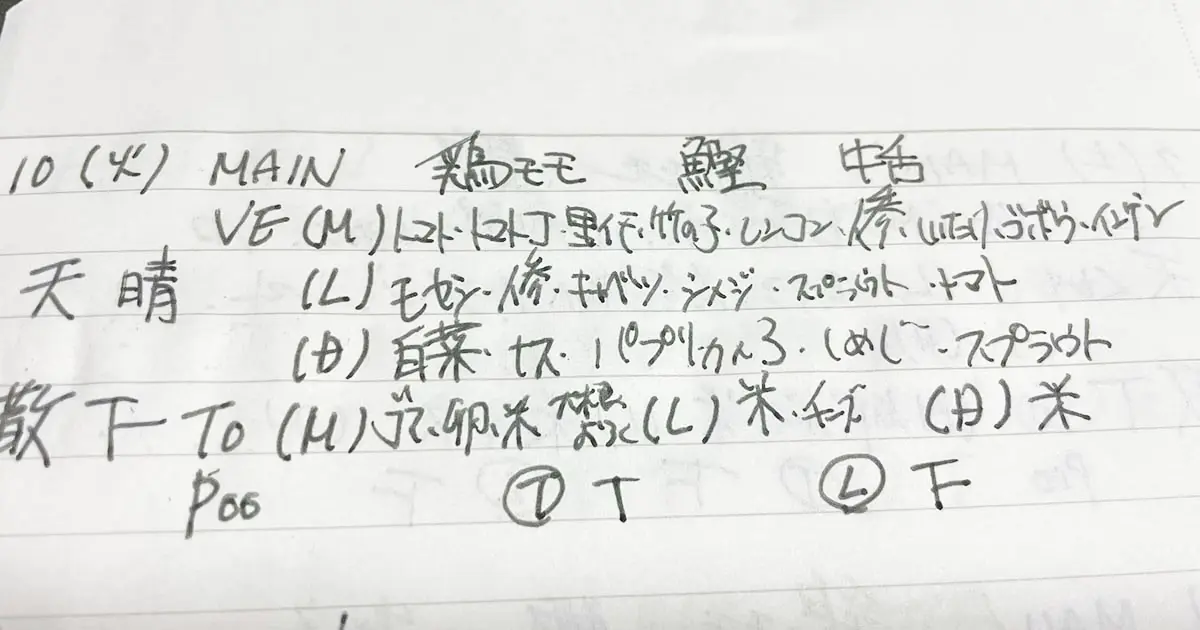 10(火) MAIN 鶏モモ 鰹 牛舌
VE (M)トマト・トマト丁・里イモ・竹の子・レンコン・人参・しいたけ・ゴボウ・インゲン
天 晴 (L)モヤシ・人参・キャベツ・シメジ・スプラウト・トマト
(日)白菜・ナス・パプリカ・しめじ・スプラウト
散 下 To (M) 卵・米 大根 (L)米・チーズ (日)米
Poo Ⓣ T Ⓛ 下